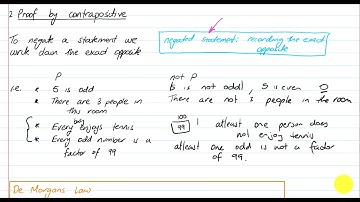 2 Proof by contrapositive
To negate a statement we
write down the exact opposite
negated statement: recording the exact
opposite
P
not P
i.e. * 5 is odd
5 is not odd, 5 is even
* There are 3 people in
this room
There are not 3 people in the room
* Every boy enjoys tennis
100
99
atleast one person does
not enjoy tennis
* Every odd number is a
factor of 99
atleast one odd is not a factor
of 99.
De Morgans Law